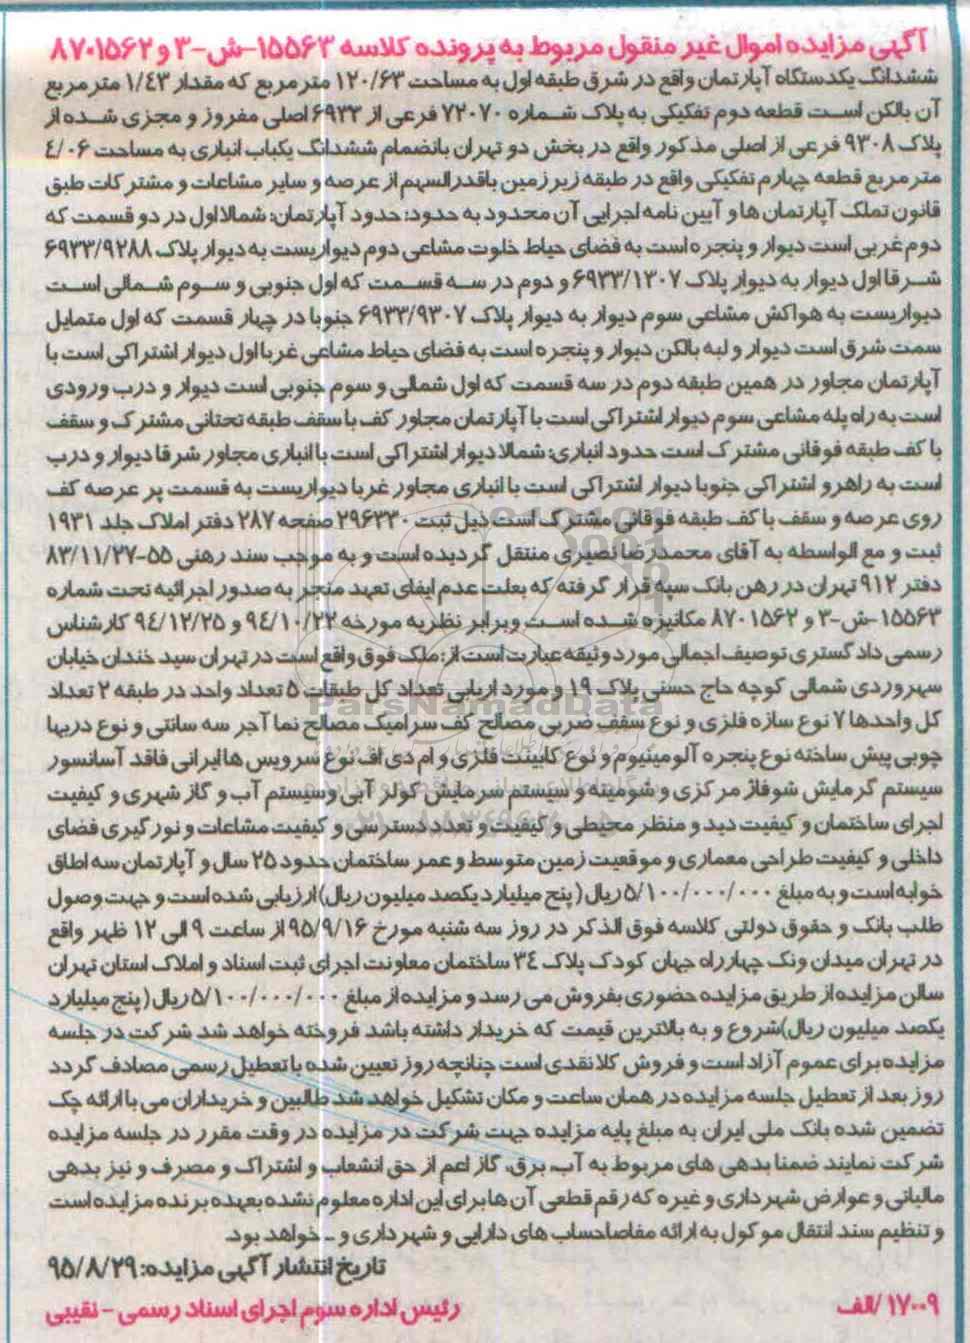 آگهی مزایده اموال غیر منقول مربوط به پرونده کلاسه ۱۵۵۶۳-ش-۳ و ۸۷۰۱۵۶۲
ششدانگ یکدستگاه آپارتمان واقع در شرق طبقه اول به مساحت ۱۲۰/۶۳ متر مربع که مقدار ۱/۴۳ متر مربع
آن بالکن است قطعه دوم تفکیکی به پلاک شماره ۷۲۰۷۰ فرعی از ۶۹۳۳ اصلی مفروز و مجزی شده از
پلاک ۹۳۰۸ فرعی از اصلی مذکور واقع در بخش دو تهران بانضمام ششدانگ یکباب انباری به مساحت ۴/۰۶
متر مربع قطعه چهارم تفکیکی واقع در طبقه زیرزمین باقدرالسهم از عرصه و سایر مشاعات و مشترکات طبق
قانون تملک آپارتمان ها و آیین نامه اجرایی آن محدود به حدود: حدود آپارتمان: شمالا اول در دو قسمت که
دوم غربی است دیوار و پنجره است به فضای حیاط خلوت مشاعی دوم دیواریست به دیوار پلاک ۶۹۳۳/۹۲۸۸
شرقا اول دیوار به دیوار پلاک ۶۹۳۳/۱۳۰۷ و دوم در سه قسمت که اول جنوبی و سوم شمالی است
دیواریست به هواکش مشاعی سوم دیوار به دیوار پلاک ۶۹۳۳/۹۳۰۷ جنوبا در چهار قسمت که اول متمایل
سمت شرق است دیوار و لبه بالکن دیوار و پنجره است به فضای حیاط مشاعی غربا اول دیوار اشتراکی است با
آپارتمان مجاور در همین طبقه دوم در سه قسمت که اول شمالی و سوم جنوبی است دیوار و درب ورودی
است به راه پله مشاعی سوم دیوار اشتراکی است با آپارتمان مجاور کف با سقف طبقه تحتانی مشترک و سقف
با کف طبقه فوقانی مشترک است حدود انباری: شمالا دیوار اشتراکی است با انباری مجاور شرقا دیوار و درب
است به راهرو اشتراکی جنوبا دیوار اشتراکی است با انباری مجاور غربا دیواریست به قسمت پر عرصه کف
روی عرصه و سقف با کف طبقه فوقانی مشترک است ذیل ثبت ۲۹۶۳۳۰ صفحه ۲۸۷ دفتر املاک جلد ۱۹۳۱
ثبت و مع الواسطه به آقای محمدرضا نصیری منتقل گردیده است و به موجب سند رهنی ۵۵-۸۳/۱۱/۲۷
دفتر ۹۱۲ تهران در رهن بانک سپه قرار گرفته که بعلت عدم ایفای تعهد منجر به صدور اجرائیه تحت شماره
۱۵۵۶۳-ش-۳ و ۸۷۰۱۵۶۲ مکانیزه شده است و برابر نظریه مورخه ۹۴/۱۰/۲۲ و ۹۴/۱۲/۲۵ کارشناس
رسمی دادگستری توصیف اجمالی مورد وثیقه عبارت است از: ملک فوق واقع است در تهران سید خندان خیابان
سهروردی شمالی کوچه حاج حسنی پلاک ۱۹ و مورد اریابی تعداد کل طبقات ۵ تعداد واحد در طبقه ۲ تعداد
کل واحدها ۷ نوع سازه فلزی و نوع سقف ضربی مصالح کف سرامیک مصالح نما آجر سه سانتی و نوع دربها
چوبی پیش ساخته نوع پنجره آلومینیوم و نوع کابینت فلزی و ام دی اف نوع سرویس ها ایرانی فاقد آسانسور
سیستم گرمایش شوفاژ مرکزی و شومینه و سیستم سرمایش کولر آبی و سیستم آب و گاز شهری و کیفیت
اجرای ساختمان و کیفیت دید و منظر محیطی و کیفیت و تعدد دسترسی و کیفیت مشاعات و نورگیری فضای
داخلی و کیفیت طراحی معماری و موقعیت زمین متوسط و عمر ساختمان حدود ۲۵ سال و آپارتمان سه اطاق
خوابه است و به مبلغ ۵/۱۰۰/۰۰۰/۰۰۰ ریال (پنج میلیارد یکصد میلیون ریال) ارزیابی شده است و جهت وصول
طلب بانک و حقوق دولتی کلاسه فوق الذکر در روز سه شنبه مورخ ۹۵/۹/۱۶ از ساعت ۹ الی ۱۲ ظهر واقع
در تهران میدان ونک چهارراه جهان کودک پلاک ۳۴ ساختمان معاونت اجرای ثبت اسناد و املاک استان تهران
سالن مزایده از طریق مزایده حضوری بفروش می رسد و مزایده از مبلغ ۵/۱۰۰/۰۰۰/۰۰۰ ریال (پنج میلیارد
یکصد میلیون ریال) شروع و به بالاترین قیمت که خریدار داشته باشد فروخته خواهد شد شرکت در جلسه
مزایده برای عموم آزاد است و فروش کلا نقدی است چنانچه روز تعیین شده با تعطیل رسمی مصادف گردد
روز بعد از تعطیل جلسه مزایده در همان ساعت و مکان تشکیل خواهد شد طالبین و خریداران می با ارائه چک
تضمین شده بانک ملی ایران به مبلغ پایه مزایده جهت شرکت در مزایده در وقت مقرر در جلسه مزایده
شرکت نمایند ضمنا بدهی های مربوط به آب، برق، گاز اعم از حق انشعاب و اشتراک و مصرف و نیز بدهی
مالیاتی و عوارض شهرداری و غیره که رقم قطعی آن ها برای این اداره معلوم نشده بعهده برنده مزایده است
و تنظیم سند انتقال موکول به ارائه مفاصاحساب های دارایی و شهرداری و ... خواهد بود.
تاریخ انتشار آگهی مزایده: ۹۵/۸/۲۹
۱۷۰۰۹/الف رئیس اداره سوم اجرای اسناد رسمی - نقیبی
ParsNamadData